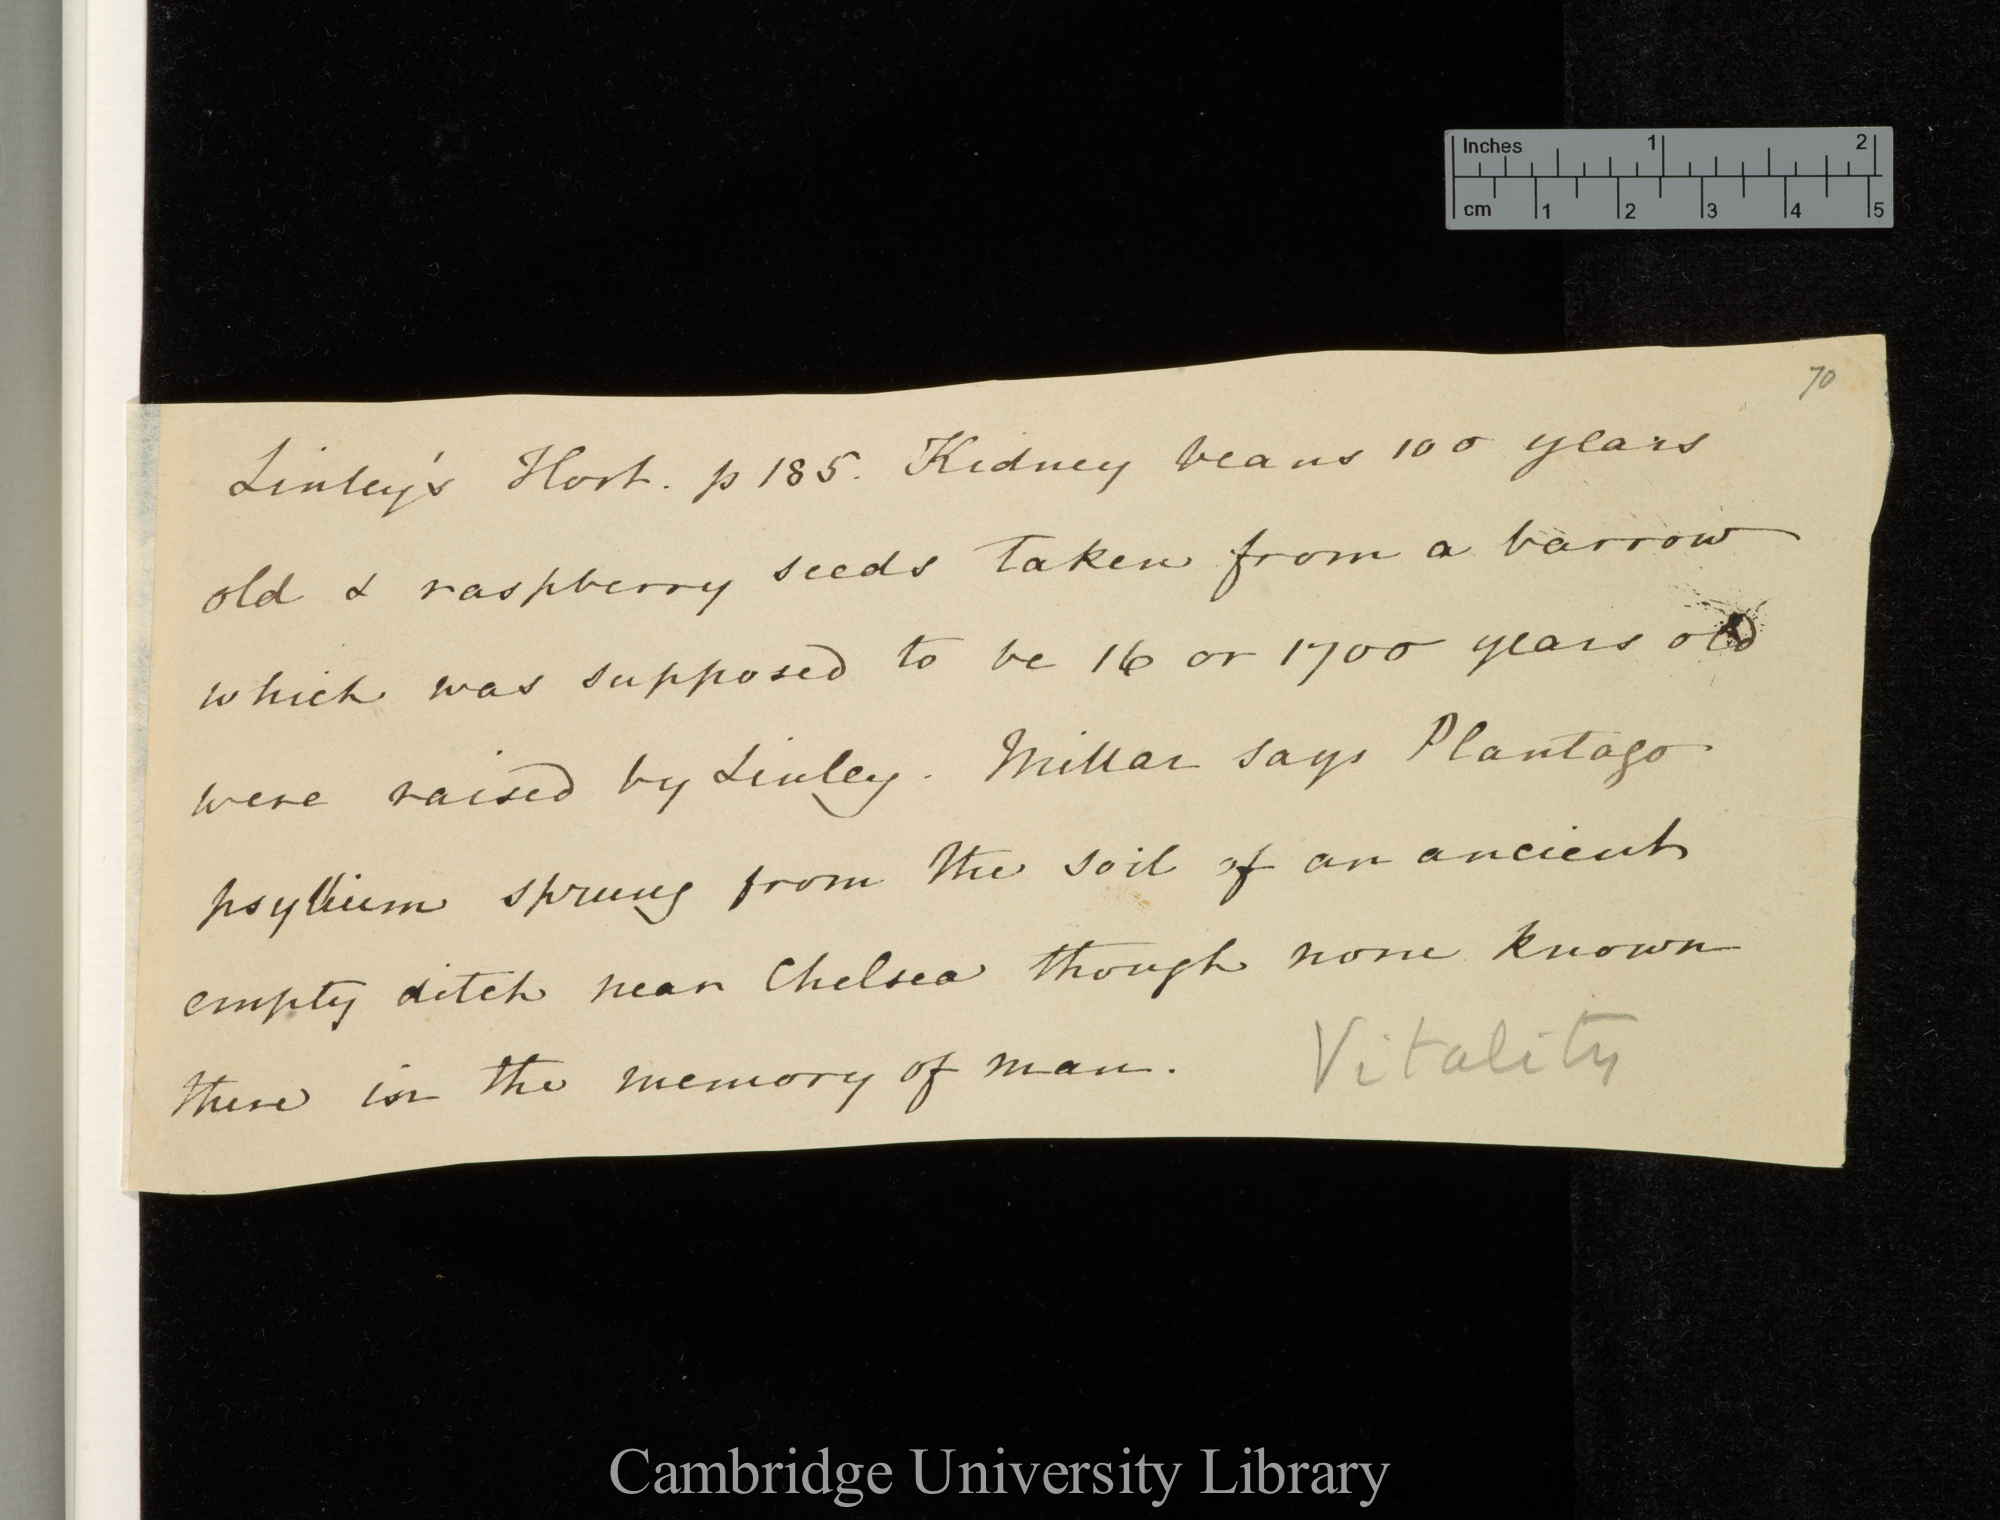 Inches 1 2
cm 1 2 3 4 5
70
Linley's Hort. p 185. Kidney beans 100 years
old & raspberry seeds taken from a barrow
which was supposed to be 16 or 1700 years old
were raised by Linley. Millar says Plantago
psyllium sprung from the soil of an ancient
empty ditch near Chelsea though none known
there in the memory of man.
Vitality
Cambridge University Library